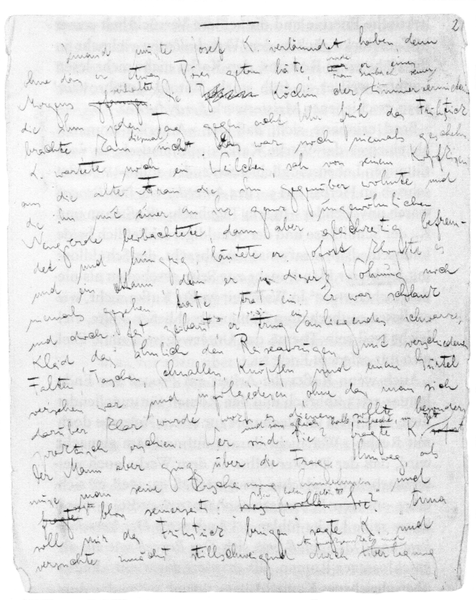 2
Jemand mußte Josef K. verläumdet haben, denn
ohne daß er etwas Böses getan hätte, wurde er eines
Morgens verhaftet. Die Köchin der Zimmervermieterin,
die ihm jeden Tag gegen acht Uhr früh das Frühstück
brachte kam diesmal nicht. Das war noch niemals geschehn.
K. wartete noch ein Weilchen, sah von seinem Kopfkissen
aus die alte Frau die ihm gegenüber wohnte und
die ihn mit einer an ihr ganz ungewöhnlichen
Neugierde beobachtete, dann aber, gleichzeitig befrem-
det und hungrig, läutete er. Sofort klopfte es
und ein Mann, den er in dieser Wohnung noch
niemals gesehen hatte trat ein. Er war schlank
und doch fest gebaut, er trug ein anliegendes schwarzes
Kleid, das ähnlich den Reiseanzügen mit verschiedenen
Falten, Taschen, Schnallen, Knöpfen und einem Gürtel
versehen war und infolgedessen, ohne daß man sich
darüber klar wurde, wozu es dienen sollte, besonders
praktisch erschien. Wer sind Sie? fragte K. und saß gleich halb aufrecht im Bett
Der Mann aber ging über die Frage hinweg, als
müsse man seine Erscheinung hinnehmen und
sagte bloß seinerseits: Sie haben geläutet? Anna
soll mir das Frühstück bringen, sagte K. und
versuchte zunächst stillschweigend durch Aufmerksamkeit und Überlegung